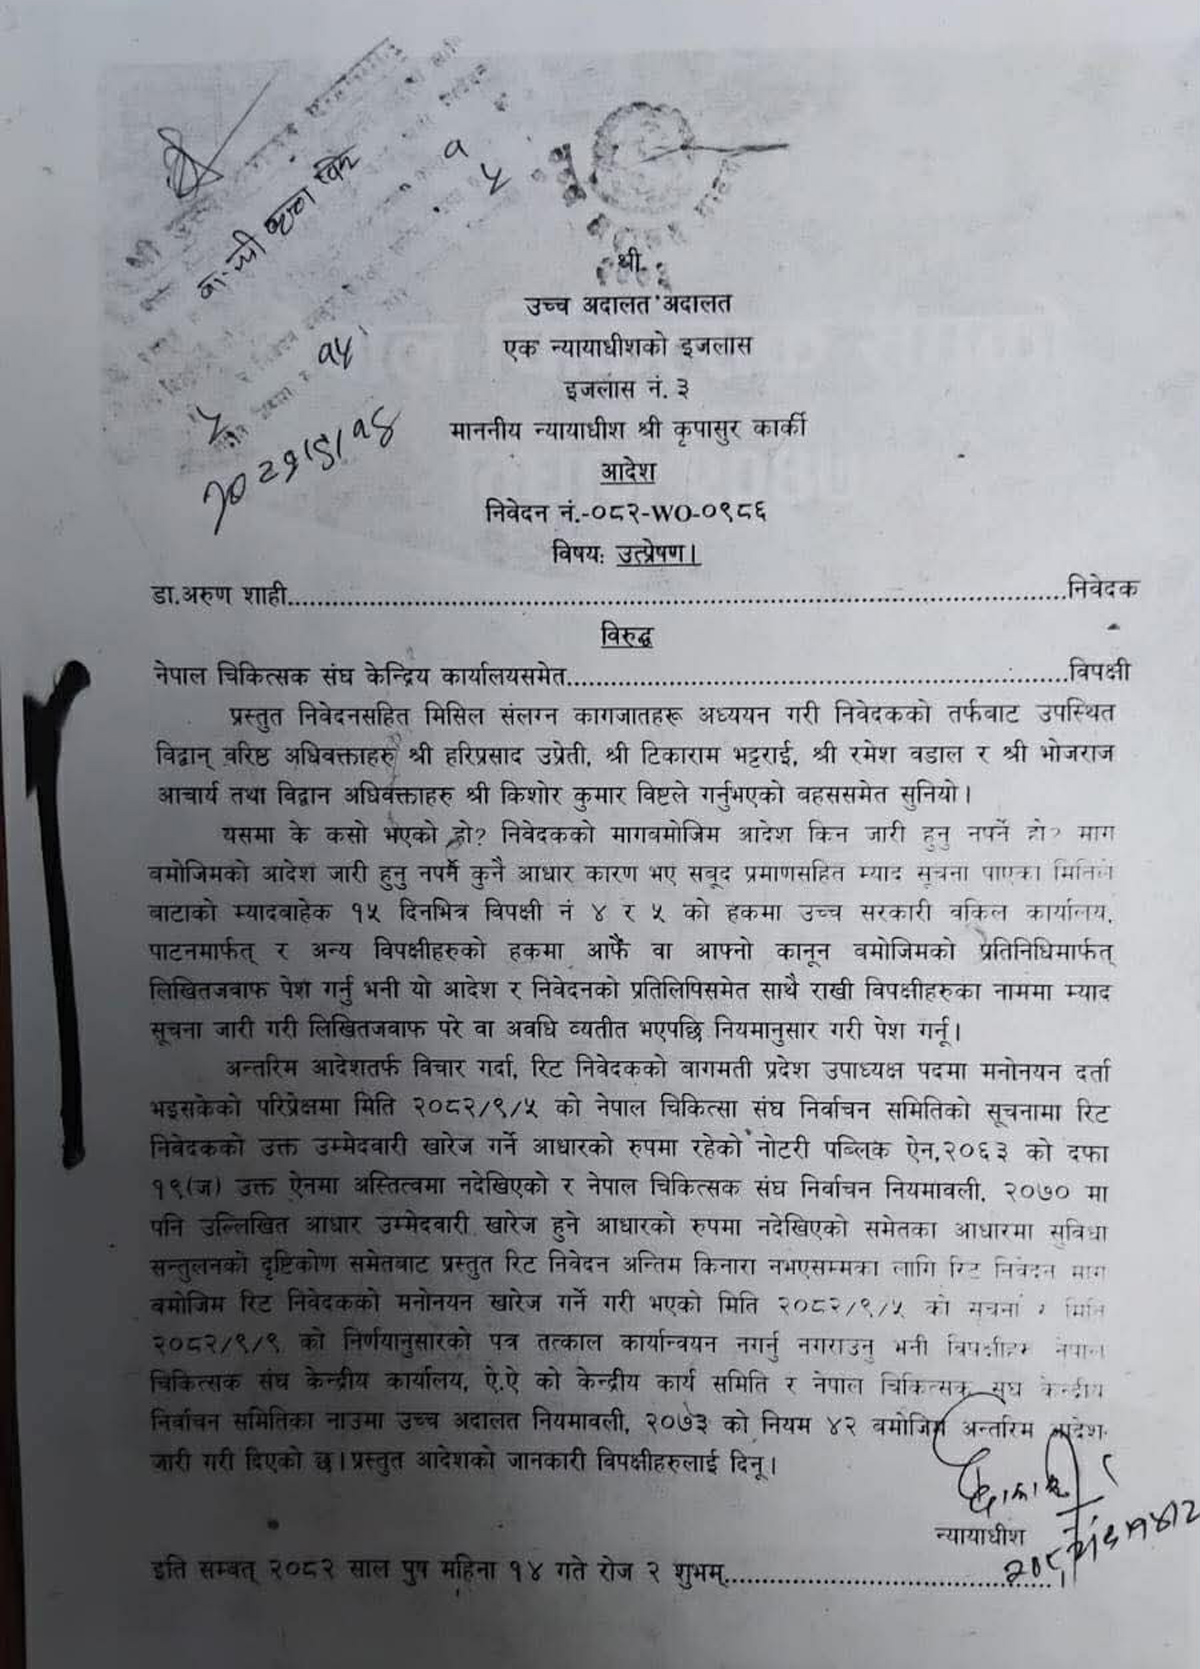 श्री
उच्च अदालत अदालत
एक न्यायाधीशको इजलास
इजलास नं. ३
माननीय न्यायाधीश श्री कृपासुर कार्की
आदेश
निवेदन नं.-०८२-WO-०९८६
विषयः उत्प्रेषण।
डा.अरुण शाही....................निवेदक
विरुद्ध
नेपाल चिकित्सक संघ केन्द्रिय कार्यालयसमेत....................विपक्षी
प्रस्तुत निवेदनसहित मिसिल संलग्न कागजातहरू अध्ययन गरी निवेदकको तर्फबाट उपस्थित
विद्वान् वरिष्ठ अधिवक्ताहरु श्री हरिप्रसाद उप्रेती, श्री टिकाराम भट्टराई, श्री रमेश वडाल र श्री भोजराज
आचार्य तथा विद्वान अधिवक्ताहरु श्री किशोर कुमार विष्टले गर्नुभएको बहससमेत सुनियो।
यसमा के कसो भएको हो? निवेदकको मागबमोजिम आदेश किन जारी हुनु नपर्ने हो? माग
बमोजिमको आदेश जारी हुनु नपर्ने कुनै आधार कारण भए सबूद प्रमाणसहित म्याद सूचना पाएका मितिले
बाटाको म्यादबाहेक १५ दिनभित्र विपक्षी नं ४ र ५ को हकमा उच्च सरकारी वकिल कार्यालय,
पाटनमार्फत् र अन्य विपक्षीहरुको हकमा आफैँ वा आफ्नो कानून बमोजिमको प्रतिनिधिमार्फत्
लिखितजवाफ पेश गर्नु भनी यो आदेश र निवेदनको प्रतिलिपिसमेत साथै राखी विपक्षीहरुका नाममा म्याद
सूचना जारी गरी लिखितजवाफ परे वा अवधि व्यतीत भएपछि नियमानुसार गरी पेश गर्नू।
अन्तरिम आदेशतर्फ विचार गर्दा, रिट निवेदकको बागमती प्रदेश उपाध्यक्ष पदमा मनोनयन दर्ता
भइसकेको परिप्रेक्षमा मिति २०८२/९/५ को नेपाल चिकित्सा संघ निर्वाचन समितिको सूचनामा रिट
निवेदकको उक्त उम्मेदवारी खारेज गर्ने आधारको रुपमा रहेको नोटरी पब्लिक ऐन,२०६३ को दफा
१९(ज) उक्त ऐनमा अस्तित्वमा नदेखिएको र नेपाल चिकित्सक संघ निर्वाचन नियमावली, २०७० मा
पनि उल्लिखित आधार उम्मेदवारी खारेज हुने आधारको रुपमा नदेखिएको समेतका आधारमा सुविधा
सन्तुलनको दृष्टिकोण समेतबाट प्रस्तुत रिट निवेदन अन्तिम किनारा नभएसम्मका लागि रिट निवेदन माग
बमोजिम रिट निवेदकको मनोनयन खारेज गर्ने गरी भएको मिति २०८२/९/५ को सूचना र मिति
२०८२/९/९ को निर्णयानुसारको पत्र तत्काल कार्यान्वयन नगर्नु नगराउनु भनी विपक्षीहरु नेपाल
चिकित्सक संघ केन्द्रीय कार्यालय, ऐ.ऐ को केन्द्रीय कार्य समिति र नेपाल चिकित्सक संघ केन्द्रीय
निर्वाचन समितिका नाउमा उच्च अदालत नियमावली, २०७३ को नियम ४२ बमोजिम अन्तरिम आदेश
जारी गरी दिएको छ। प्रस्तुत आदेशको जानकारी विपक्षीहरुलाई दिनू।
न्यायाधीश
इति सम्बत् २०८२ साल पुष महिना १४ गते रोज २ शुभम्....................